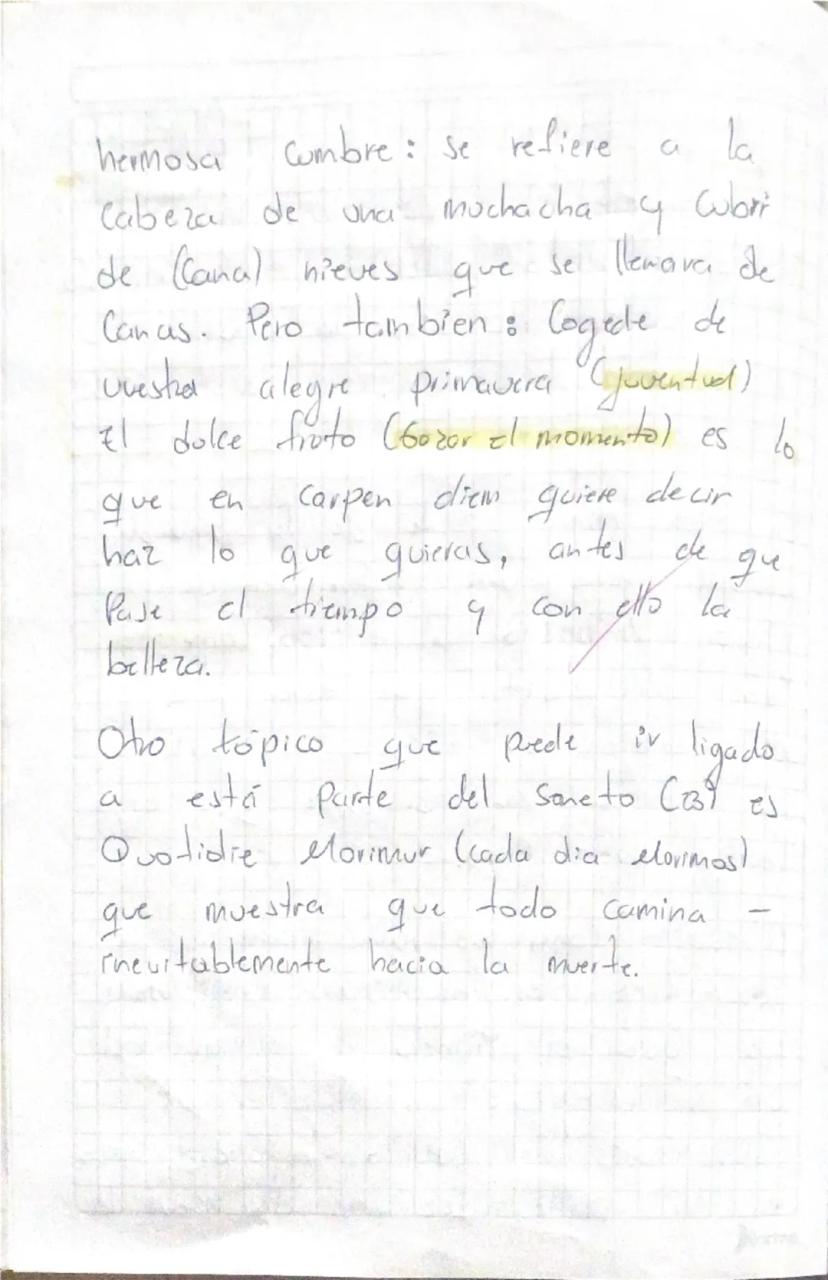 hermosa cumbre: se refiere a la
cabeza de una muchacha y cubri
de (Cana) nieves que se llenara de
Canas. Pero tambien: Cogede de
vuestra alegre primavera (juventud)
El dulce fruto (Gozar El momento) es lo
que en carpen diem quiere decir
haz lo que quieras, antes de que
Pase el tiempo y con ello la
belleza.
Otro tópico que puede ir ligado
a está parte del Soneto (23) es
Quotidie Morimur (cada dia Morimos)
que muestra que todo camina -
inevitablemente hacia la muerte.